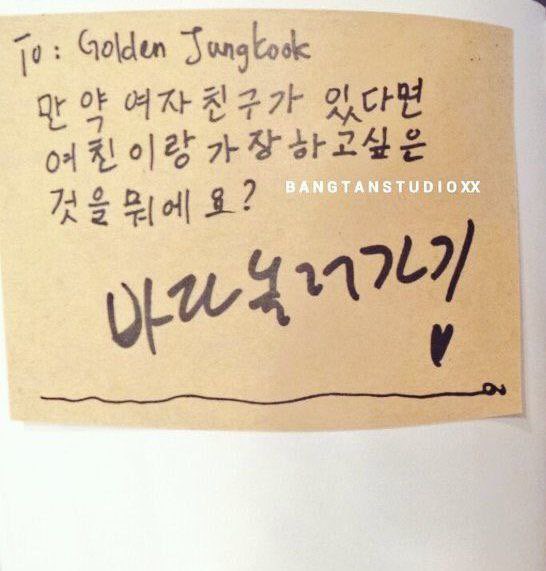 To: Golden Jungkook
만약 여자친구가 있다면
여친이랑 가장하고싶은
것을 뭐에요?
BANGTANSTUDIOXX
바다 놀러가기